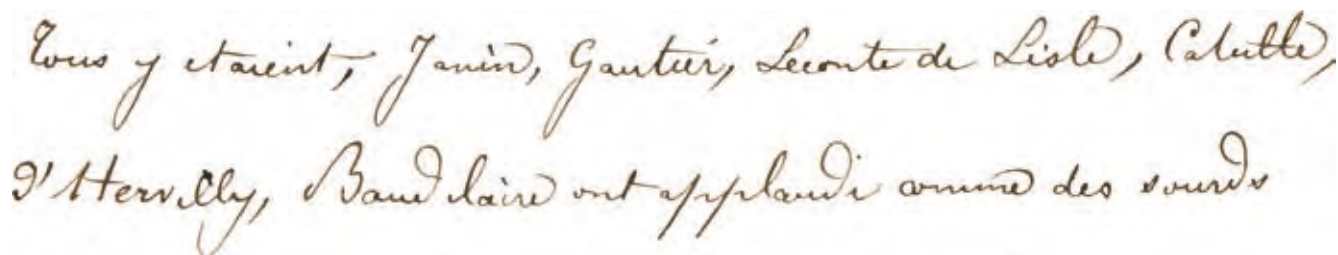 Tous y etaient, Janin, Gautier, Leconte de Lisle, Catulle,
d'Hervilly, Baudelaire ont applaudi comme des sourds